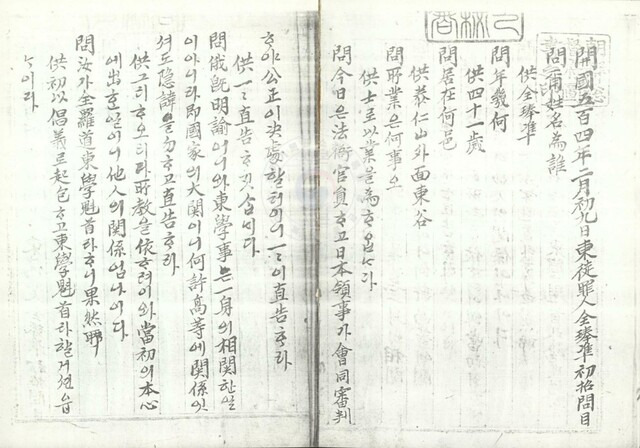 開國五百四年二月初九日東徒罪人全琫準初招問目
問爾姓名爲誰
供全琫準
問年幾何
供四十一歲
問居在何邑
供泰仁山外面東谷
問所業은何事오
供士로以業을爲ᄒᆞ옵ᄂᆡ다
問今日은法衙官員ᄒᆞ고日本領事가會同審判
ᄒᆞ야公正이决處ᄒᆞᆯ터이니一一이直告ᄒᆞ라
供一一直告ᄒᆞ깃습ᄂᆡ다
問俄旣明諭어니와東學事ᄂᆞᆫ一身의相關한일
이아니라即國家의大関이니何許高等에関係잇
셔도隐諱을勿ᄒᆞ고直告ᄒᆞ라
供그리ᄒᆞ오리다所教을依ᄒᆞ려이와當初의本心
에出ᄒᆞᆫ일이니他人의関係업나이다
問汝가全羅道東學魁首라ᄒᆞ니果然耶
供初以倡義로起包ᄒᆞ고東學魁首라할거션읍
ᄂᆞ이다